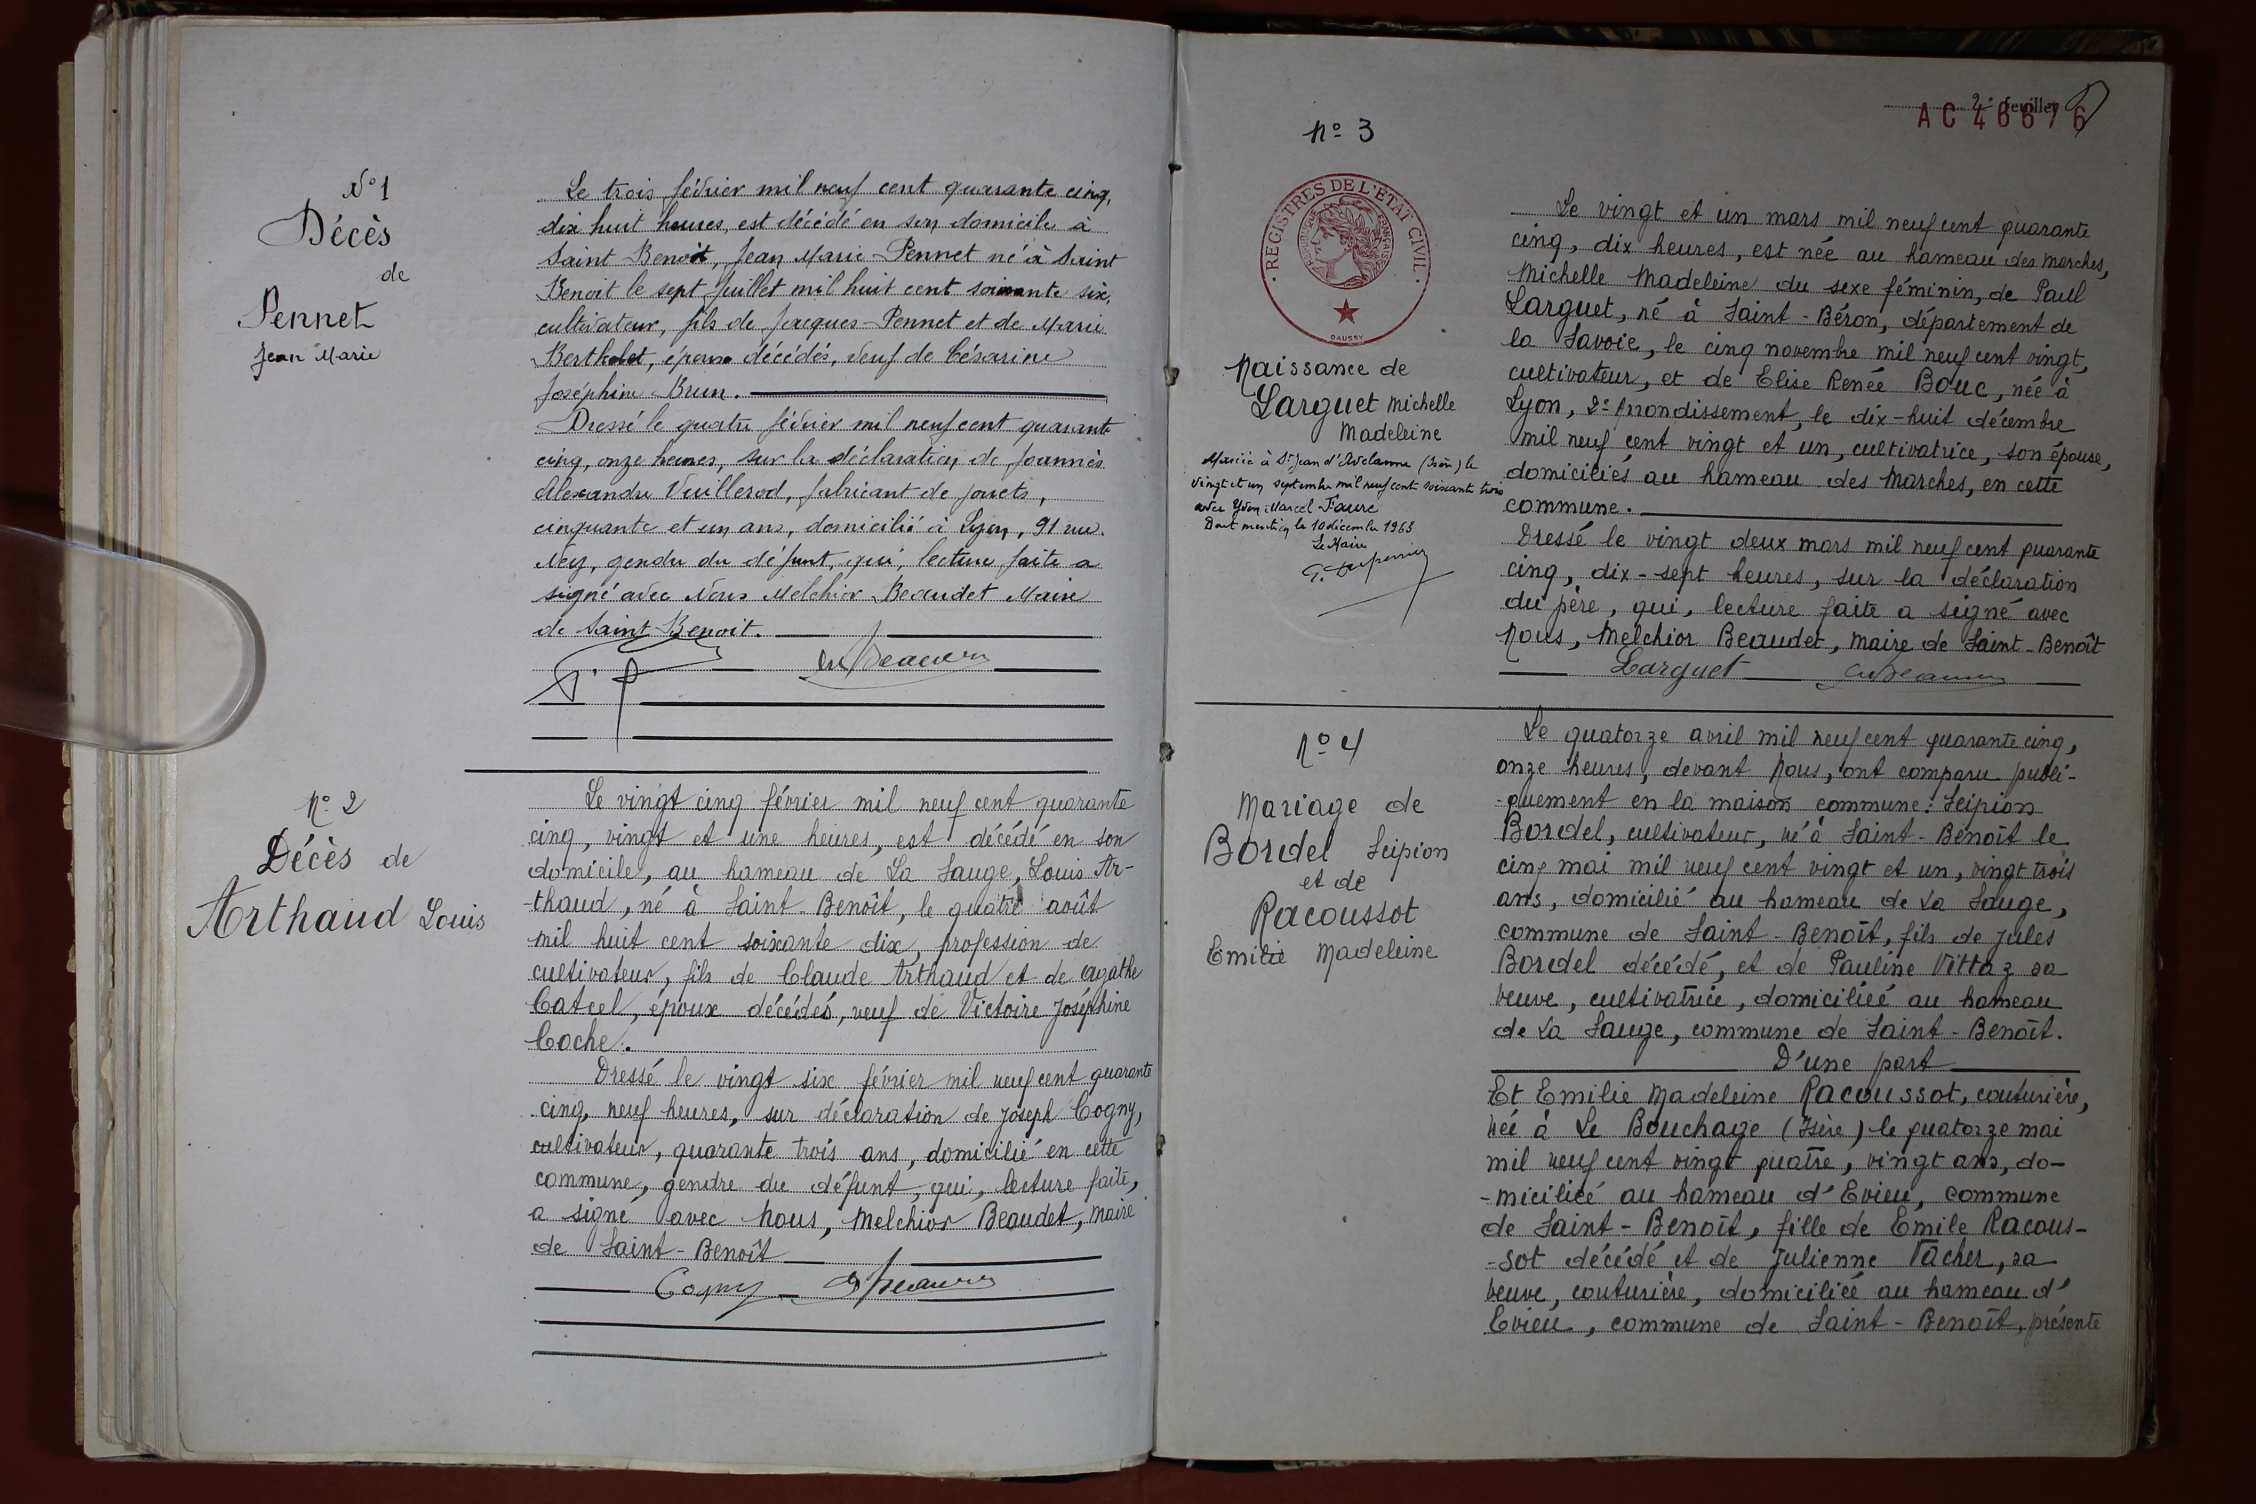 N° 1
Décès
de
Pennet
Jean Marie
Le trois février mil neuf cent quarante cinq,
dix huit heures, est décédé en son domicile à
Saint Benoit, Jean Marie Pennet né à Saint
Benoit le sept Juillet mil huit cent soixante six,
cultivateur, fils de Jacques Pennet et de Marie
Berthelet, époux décédés, veuf de Césarine
Joséphine Brun.
Dressé le quatre février mil neuf cent quarante
cinq, onze heures, sur la déclaration de Joannès
Alexandre Vuillerod, fabricant de jouets,
cinquante et un ans, domicilié à Lyon, 91 rue
Ney, gendre du défunt, qui, lecture faite a
signé avec Nous Melchior Beaudet Maire
de Saint Benoit.
N° 2
Décès de
Arthaud Louis
Le vingt cinq février mil neuf cent quarante
cinq, vingt et une heures, est décédé en son
domicile, au hameau de La Sauge, Louis Ar-
-thaud, né à Saint-Benoît, le quatre août
mil huit cent soixante dix, profession de
cultivateur, fils de Claude Arthaud et de Agathe
Catcel, époux décédés, veuf de Victoire Joséphine
Coche.
Dressé le vingt six février mil neuf cent quarante
cinq, neuf heures, sur déclaration de Joseph Cogny,
cultivateur, quarante trois ans, domicilié en cette
commune, gendre du défunt, qui, lecture faite,
a signé avec Nous, Melchior Beaudet, maire
de Saint-Benoît
Cogny
2e feuillet
AC 46676
N° 3
REGISTRES DE L'ETAT CIVIL
DAUSSY
Naissance de
Larguet Michelle
Madeleine
Mariée à St Jean d'Avelanne (Isère) le
vingt et un septembre mil neuf cent soixante trois
avec Yvon Marcel Faure
Dont mention le 10 décembre 1963
Le Maire
Le vingt et un mars mil neuf cent quarante
cinq, dix heures, est née au hameau des Marches,
Michelle Madeleine du sexe féminin, de Paul
Larguet, né à Saint-Béron, département de
la Savoie, le cinq novembre mil neuf cent vingt,
cultivateur, et de Elise Renée Bouc, née à
Lyon, 2e Arrondissement, le dix-huit décembre
mil neuf cent vingt et un, cultivatrice, son épouse,
domiciliés au hameau des Marches, en cette
commune.
Dressé le vingt deux mars mil neuf cent quarante
cinq, dix-sept heures, sur la déclaration
du père, qui, lecture faite a signé avec
Nous, Melchior Beaudet, maire de Saint-Benoît
Larguet
N° 4
Mariage de
Bordel Scipion
et de
Racoussot
Emilie Madeleine
Le quatorze avril mil neuf cent quarante cinq,
onze heures, devant Nous, ont comparu publi-
-quement en la maison commune: Scipion
Bordel, cultivateur, né à Saint-Benoît le
cinq mai mil neuf cent vingt et un, vingt trois
ans, domicilié au hameau de La Sauge,
commune de Saint-Benoît, fils de Jules
Bordel décédé, et de Pauline Vittaz sa
veuve, cultivatrice, domiciliée au hameau
de La Sauge, commune de Saint-Benoît.
D'une part
Et Emilie Madeleine Racoussot, couturière,
née à Le Bouchage (Isère) le quatorze mai
mil neuf cent vingt quatre, vingt ans, do-
-miciliée au hameau d'Evieu, commune
de Saint-Benoît, fille de Emile Racous-
-sot décédé et de Julienne Vacher, sa
veuve, couturière, domiciliée au hameau d'
Evieu, commune de Saint-Benoît, présente